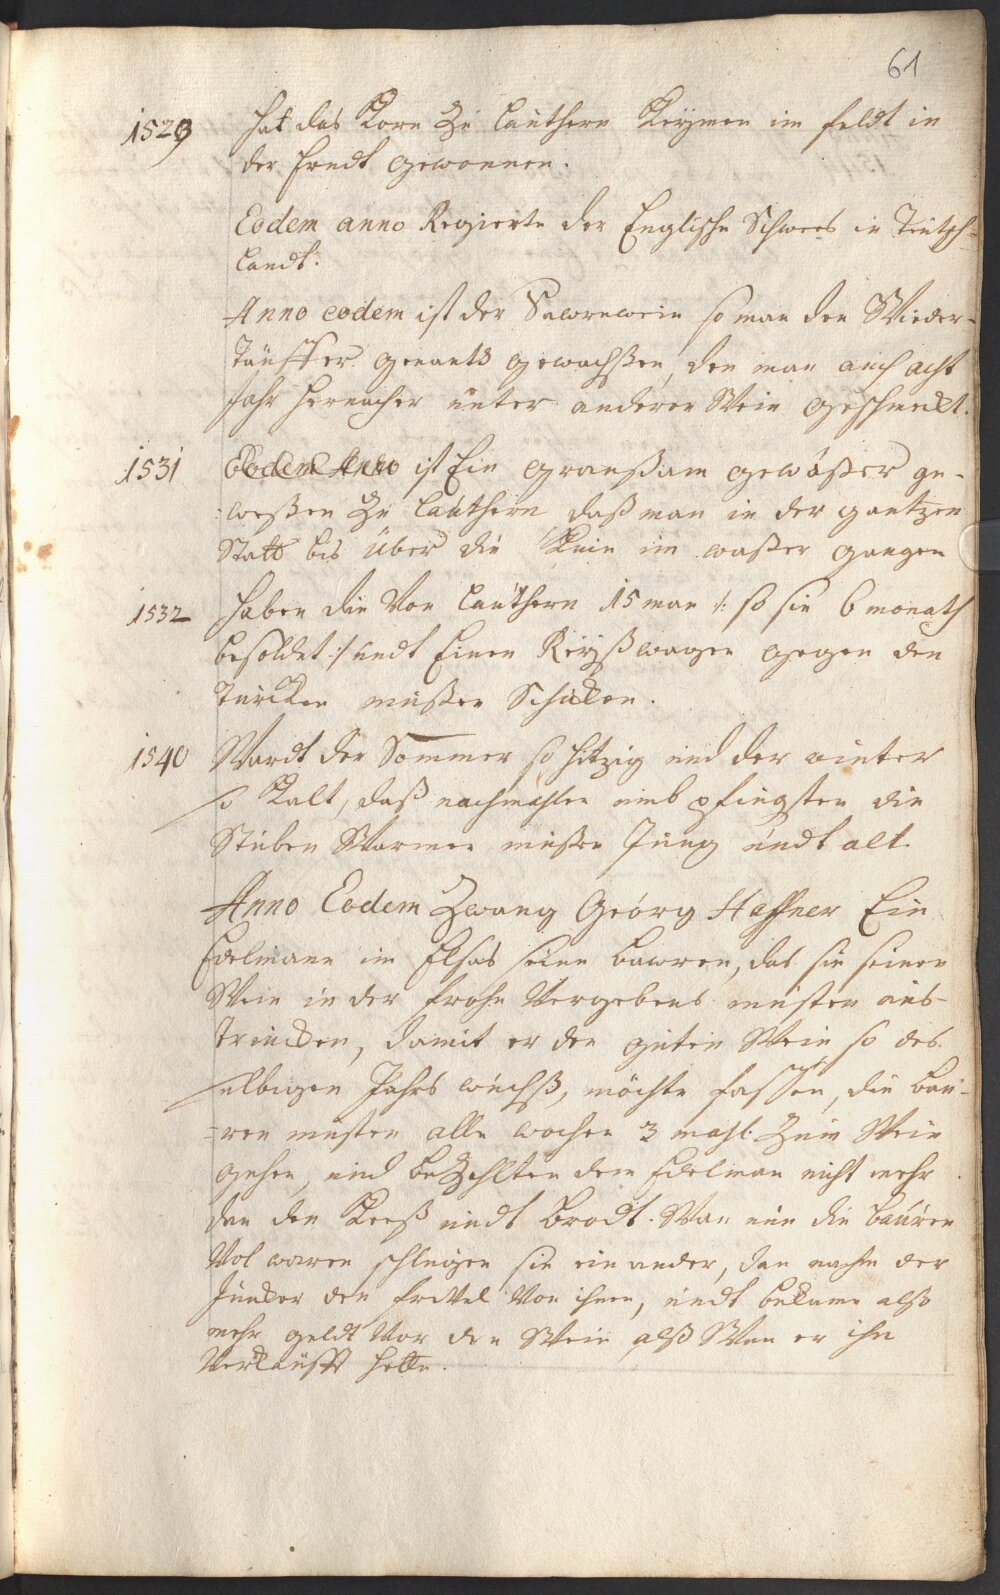 61
1529 Hat das Korn Zu Lauthern Keymen im feldt in
der Erndt gewonnen.
Eodem anno Regierte der Englische Schweis in Teutsch-
landt.
Anno eodem ist der Sawrwein so man den Wieder-
Täuffer genant gewachßen, den man auch acht
Jahr hernacher unter anderen Wein geschmeckt.
1531 Eodem Anno ist Ein graußam gewäßer ge-
=weßen Zu Lauthern daß man in der gantzen
Statt bis über die Knie im waßer gangen
1532 haben die Von Lauthern 15 man /: so sie 6 monath
besoldet :/ undt Einen Reyßwagen gegen den
Türcken müßen Schicken.
1540 Wardt der Sommer so hitzig und der winter
so Kalt, daß nachmahlen umb pfingsten die
Stuben Warmen müßen Jung undt alt.
Anno Eodem Zwang Georg Haffner Ein
Edelmann im Elsas seine bawren, das sie seinen
Wein in der frohn Vergebens musten aus-
Trincken, damit er den guten Wein so des-
selbigen Jahrs wuchß, möchte fassen, die bau-
=ren musten alle wochen 3 mahl Zum Wein
gehen, und beZahlten dem Edelman nicht mehr
dan den Keeß undt brodt. Wan nun die bauren
Vol waren schlugen sie einander, dan nahm der
Juncker den frevel Von ihnen, undt bekame also
mehr geldt Vor den Wein alß Wan er ihn
Verkaufft hette.